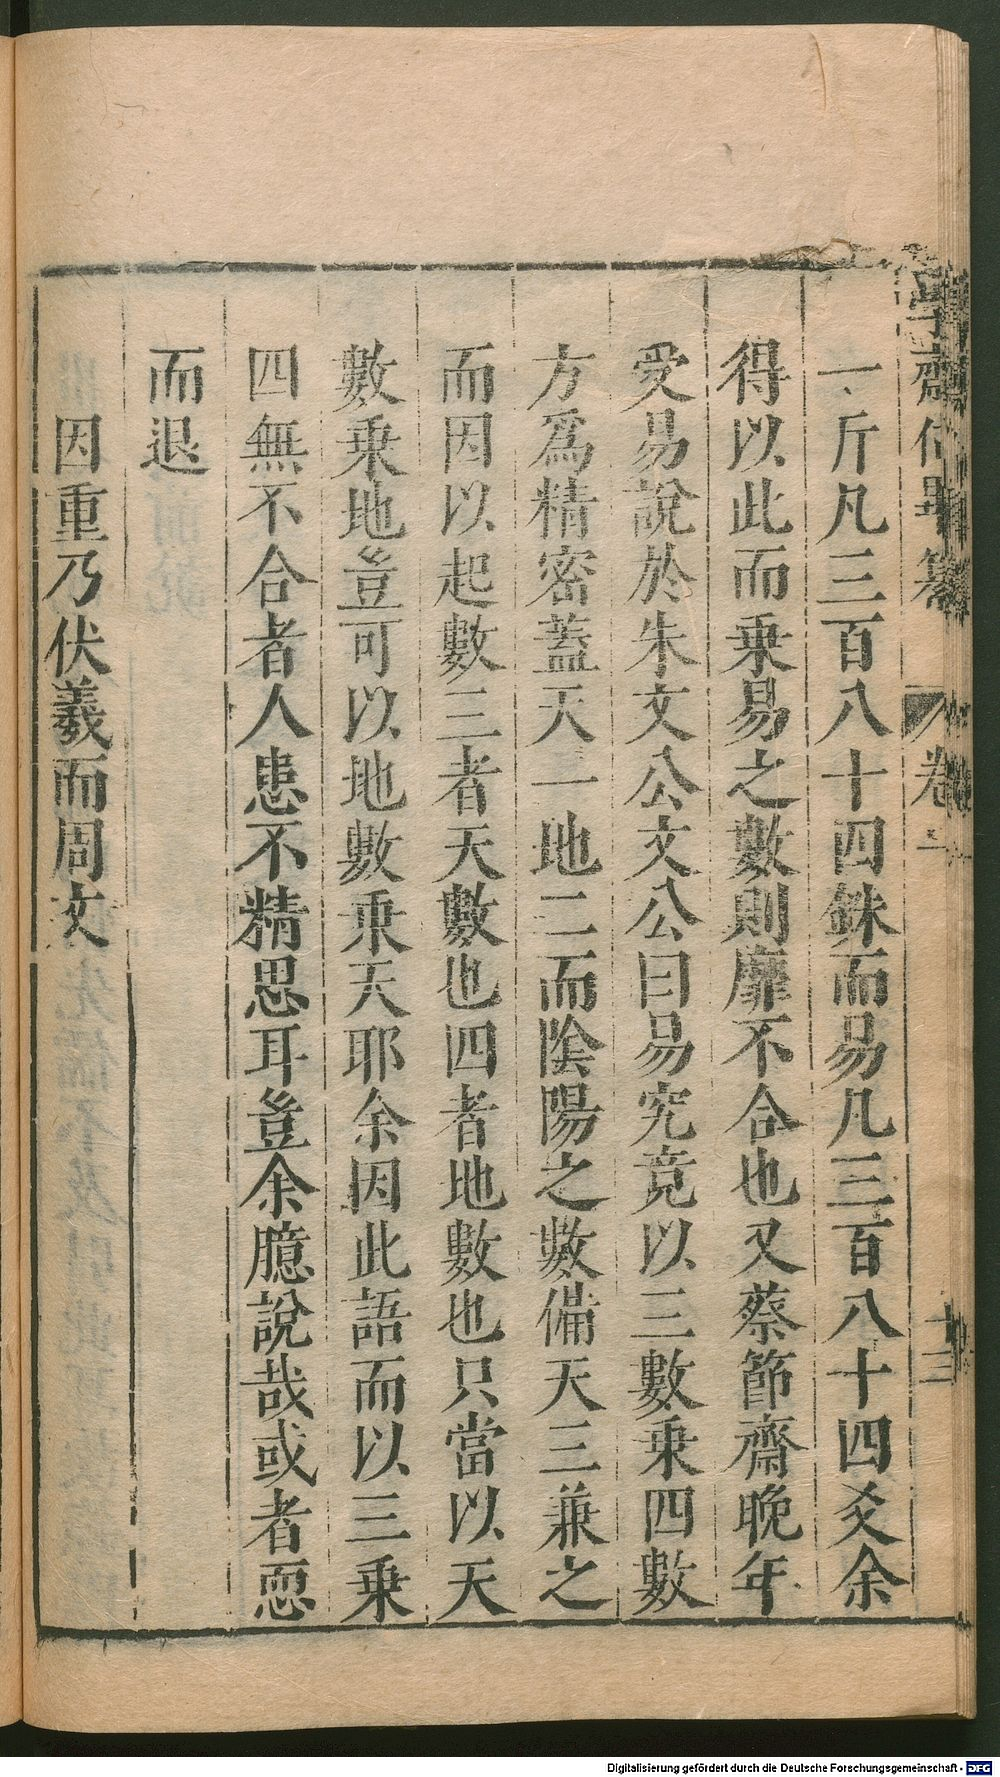 學齋佔畢纂 卷之一 十三
一斤凡三百八十四銖而易凡三百八十四爻余
得以此而乗易之數則靡不合也又蔡節齋晚年
受易說於朱文公文公曰易究竟以三數乗四數
方爲精密蓋天一地二而陰陽之數備天三兼之
而因以起數三者天數也四者地數也只當以天
數乗地豈可以地數乗天耶余因此語而以三乗
四無不合者人患不精思耳豈余臆說哉或者恧
而退
因重乃伏羲而周文
Digitalisierung gefördert durch die Deutsche Forschungsgemeinschaft - DFG